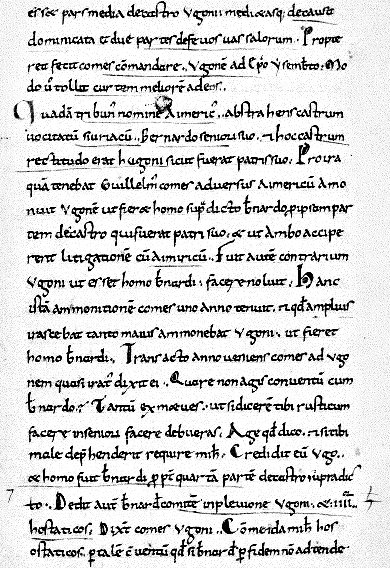 ei sex pars media de castro ugoni medietasq; de causa
domnicata et due partes de fevos vassalorum. Propte
rea fecit comes cōmandare Ugonē ad ep̄o ysembto. Mo
do ū tollit cum meliorē ad eos.
Quadā tribun' nomine Aimeric' abstrahens castrum
vocitatū siuriacū. Bernardo seniori suo. et hoc castrum
rectitudo erat hugoni sicut fuerat patri suo. Pro ira
quā tenebat Guillelm' comes adversus Aimericū Amo
nuit Ugonē ut fieret homo sup̄dicto b̄nardo, p̄ ipsam par
tem de castro qui fuerat patri suo, et ut Ambo accipe
rent litigationē cū Aimiricū. Fuit autē contrarium
Ugoni ut esset homo b̄nardi. facere noluit. hanc
istā ammonitionē comes uno anno tenuit. et qd̄ amplius
irascebat tanto maius ammonebat Ugoni. ut fieret
homo b̄nardi. Transacto anno veniens comes ad ugo
nem quasi irat' dixit ei. Quare non agis conventū cum
b̄nardo? Tantū ex me es. ut si dicerē tibi rusticum
facere in seniorē facere debueras. Age qd̄ dico. et si tibi
male dep̄henderit require mih̄. Credidit tū Ugo.
et homo fuit b̄nardi p̄p̄t quartā partē de castro supradic
to. Dedit autē b̄nard' comitē in plevione Ugoni. et .iiii.
hostaticos. Dixit comes Ugoni. Cōmeida mih̄ hos
ostaticos. p̄ tale cōventū qd̄ si b̄nard' p̄ fidem nō adtende